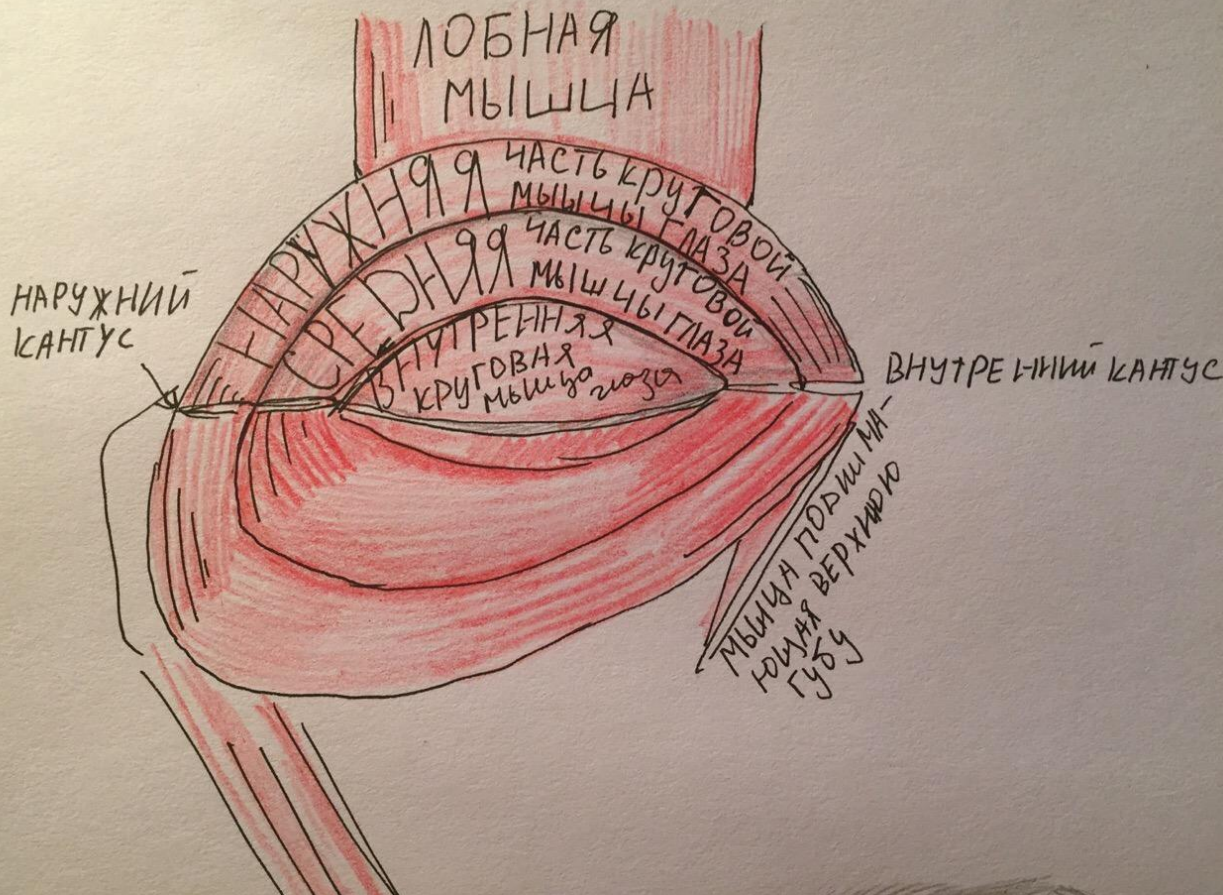 ЛОБНАЯ
МЫШЦА
НАРУЖНЯЯ ЧАСТЬ КРУГОВОЙ
МЫШЦЫ ГЛАЗА
СРЕДНЯЯ ЧАСТЬ КРУГОВОЙ
МЫШЦЫ ГЛАЗА
ВНУТРЕННЯЯ
КРУГОВАЯ
мышца глаза
НАРУЖНИЙ
КАНТУС
ВНУТРЕННИЙ КАНТУС
МЫЩА ПОДНИМА-
ЮЩАЯ ВЕРХНЮЮ
ГУБУ